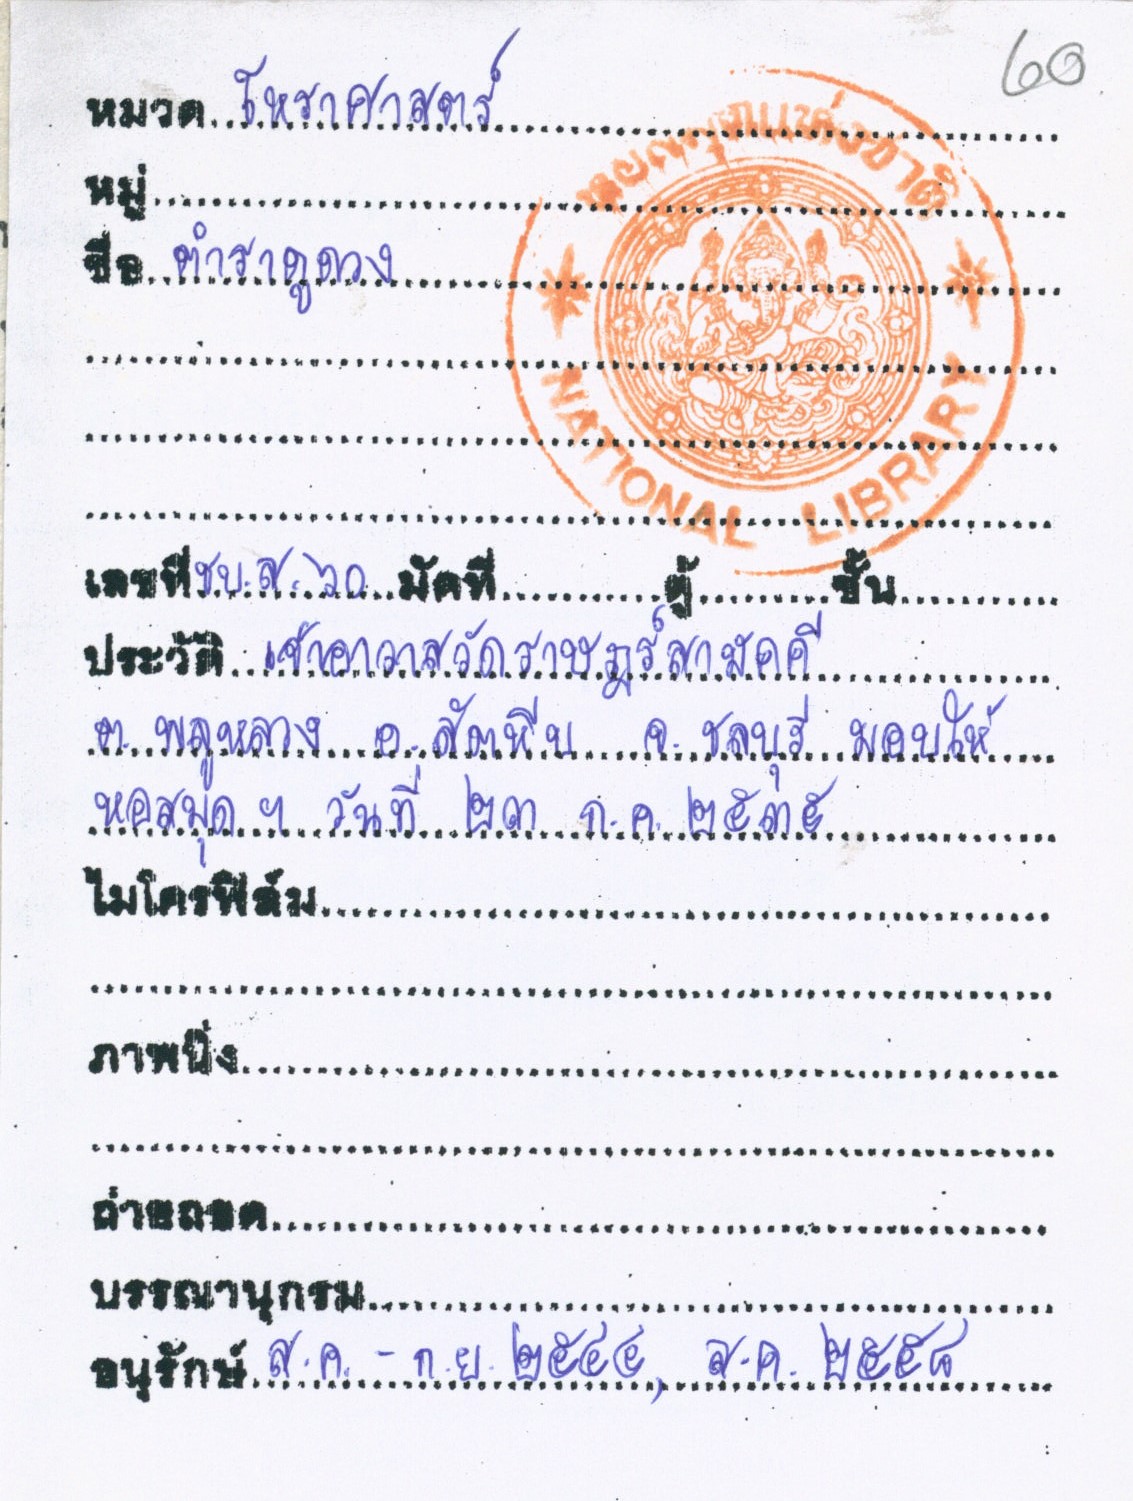 ๖๐
หมวด โหราศาสตร์
หอสมุดแห่งชาติ
หมู่
ชื่อ ตำราดูดวง
NATIONAL LIBRARY
เลขที่ ชบ.ส. ๖๐ มัดที่ ตู้ ชั้น
ประวัติ เจ้าอาวาสวัดราษฎร์สามัคคี
ต. พลูหลวง อ. สัตหีบ จ. ชลบุรี มอบให้
หอสมุด ฯ วันที่ ๒๓ ก.ค. ๒๕๓๕
ไมโครฟิล์ม
ภาพนิ่ง
ถ่ายถอด
บรรณานุกรม
อนุรักษ์ ส.ค. - ก.ย. ๒๕๔๔, ส.ค. ๒๕๕๘